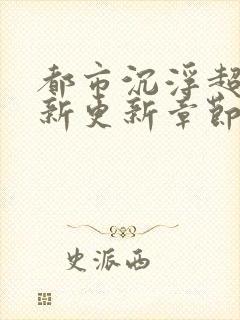 都市沉浮超
新更新章节
史派西